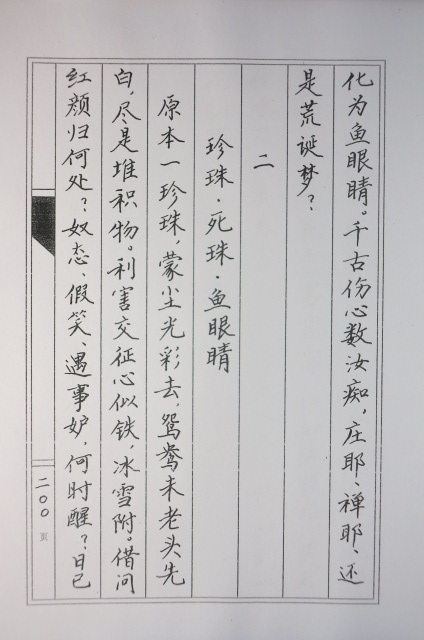 化为鱼眼睛。千古伤心数汝痴，庄耶、禅耶、还
是荒诞梦？
二
珍珠·死珠·鱼眼睛
原本一珍珠，蒙尘光彩去，鸳鸯未老头先
白，尽是堆积物。利害交征心似铁，冰雪附。借问
红颜归何处？奴态、假笑、遇事妒，何时醒？日已
二〇〇页